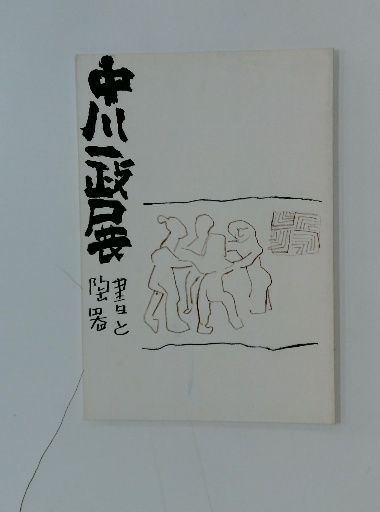 中川一政展
書と
陶器